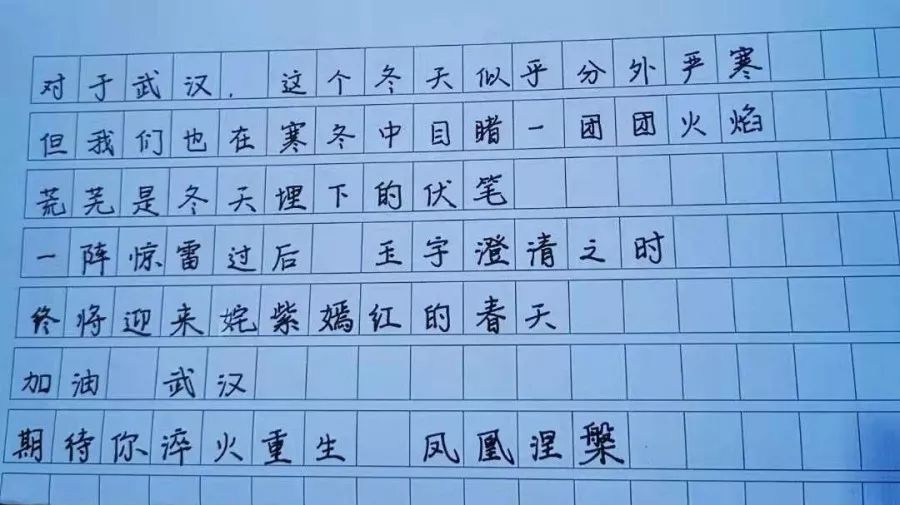 对于武汉，这个冬天似乎分外严寒
但我们也在寒冬中目睹一团团火焰
荒芜是冬天埋下的伏笔
一阵惊雷过后 玉宇澄清之时
终将迎来姹紫嫣红的春天
加油 武汉
期待你淬火重生 凤凰涅槃